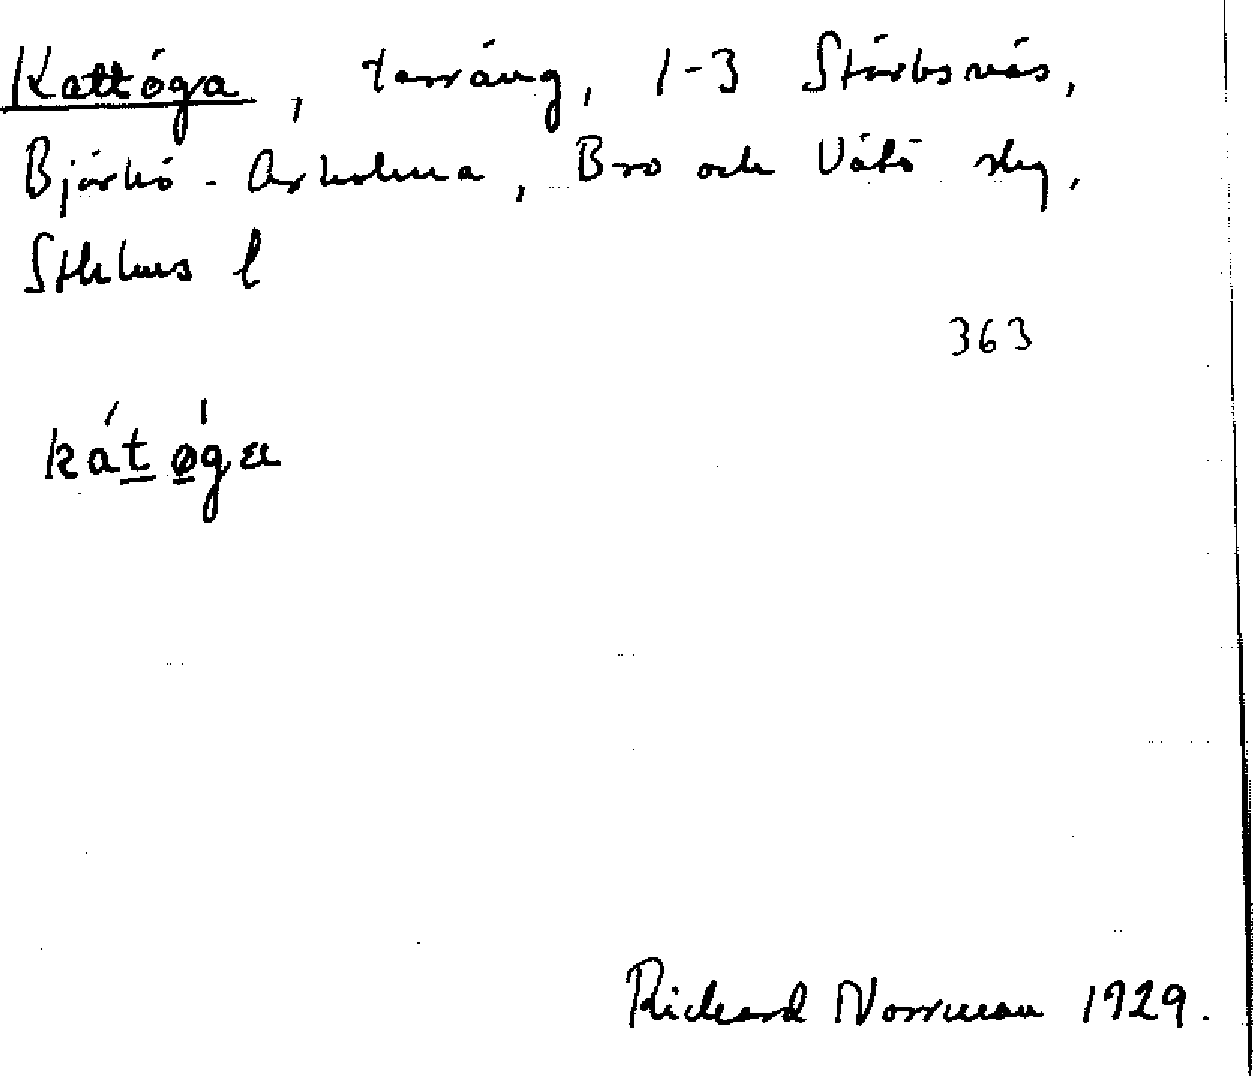 Kattöga, terräng, 1-3 Störbsnäs,
Björkö-Arholma, Bro och Vätö skg,
Sthlms l
363
kátø̱ga
Richard Norrman 1929.